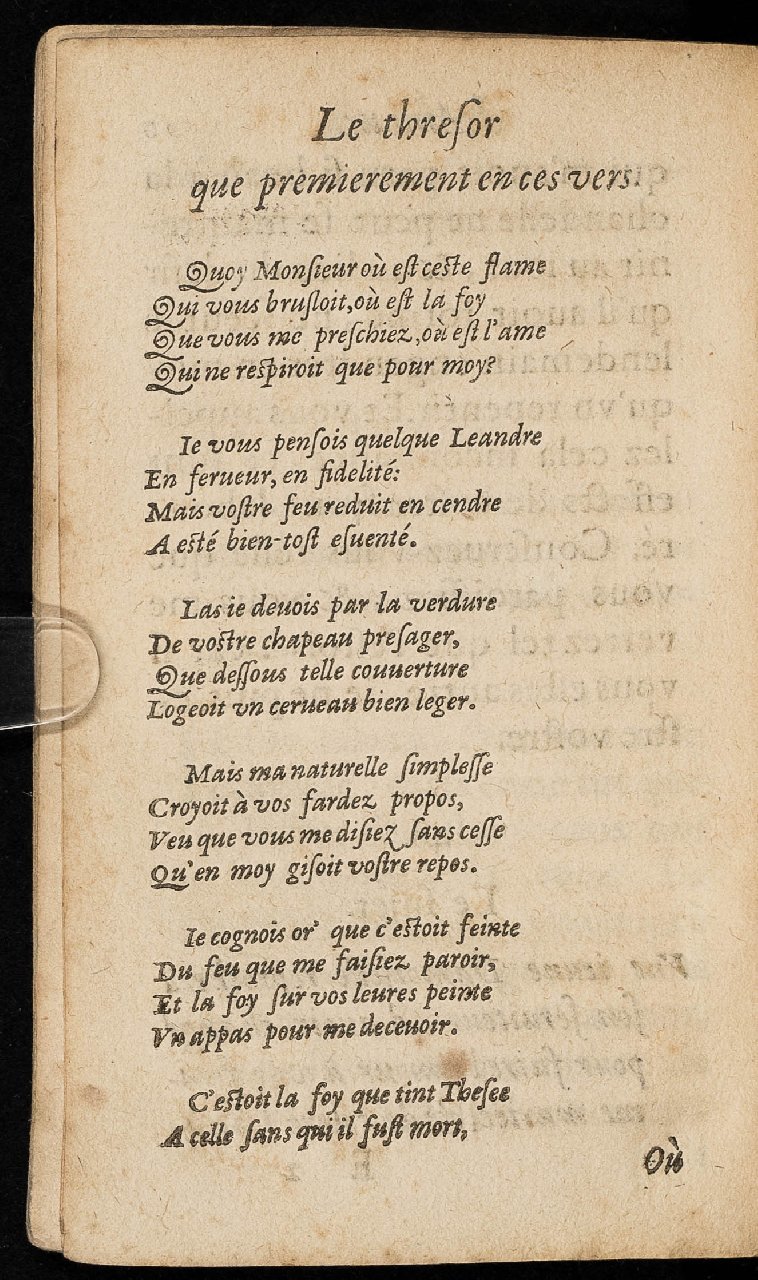 Le threſor
que premierement en ces vers.
Quoy Monſieur où eſt ceſte flame
Qui vous bruſloit, où eſt la foy
Que vous me preſchiez, où eſt l'ame
Qui ne reſpiroit que pour moy?
Ie vous penſois quelque Leandre
En ferueur, en fidelité:
Mais voſtre feu reduit en cendre
A eſté bien-toſt eſuenté.
Las ie deuois par la verdure
De voſtre chapeau preſager,
Que deſſous telle couuerture
Logeoit vn cerueau bien leger.
Mais ma naturelle ſimpleſſe
Croyoit à vos fardez propos,
Veu que vous me diſiez ſans ceſſe
Qu'en moy giſoit voſtre repos.
Ie cognois or' que c'eſtoit feinte
Du feu que me faiſiez paroir,
Et la foy ſur vos leures peinte
Vn appas pour me deceuoir.
C'eſtoit la foy que tint Theſee
A celle ſans qui il fuſt mort,
Où